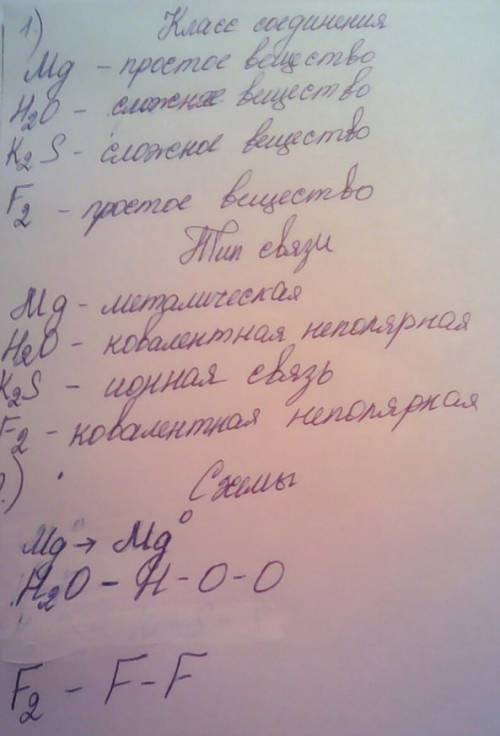 1.) Класс соединения
Mg - простое вещество
H2O - сложное вещество
K2S - сложное вещество
F2 - простое вещество
Тип связи
Mg - металическая
H2O - ковалентная неполярная
K2S - ионная связь
F2 - ковалентная неполярная
) Схемы
Mg⁰ → Mg⁰
H2O - H - O - O
F2 - F - F